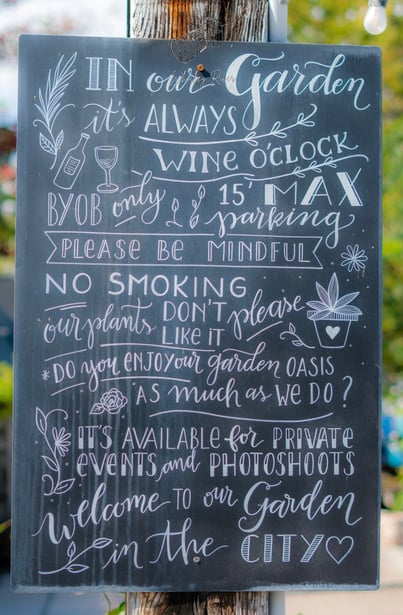 IN our Garden
it's ALWAYS
WINE O'CLOCK
BYOB only 15' MAX
parking
PLEASE BE MINDFUL
NO SMOKING
our plants DON'T please
LIKE IT
*DO you ENJOY our garden OASIS
AS much as WE DO?
IT'S AVAILABLE for PRIVATE
EVENTS and PHOTOSHOOTS
Welcome TO our Garden
in the CITY